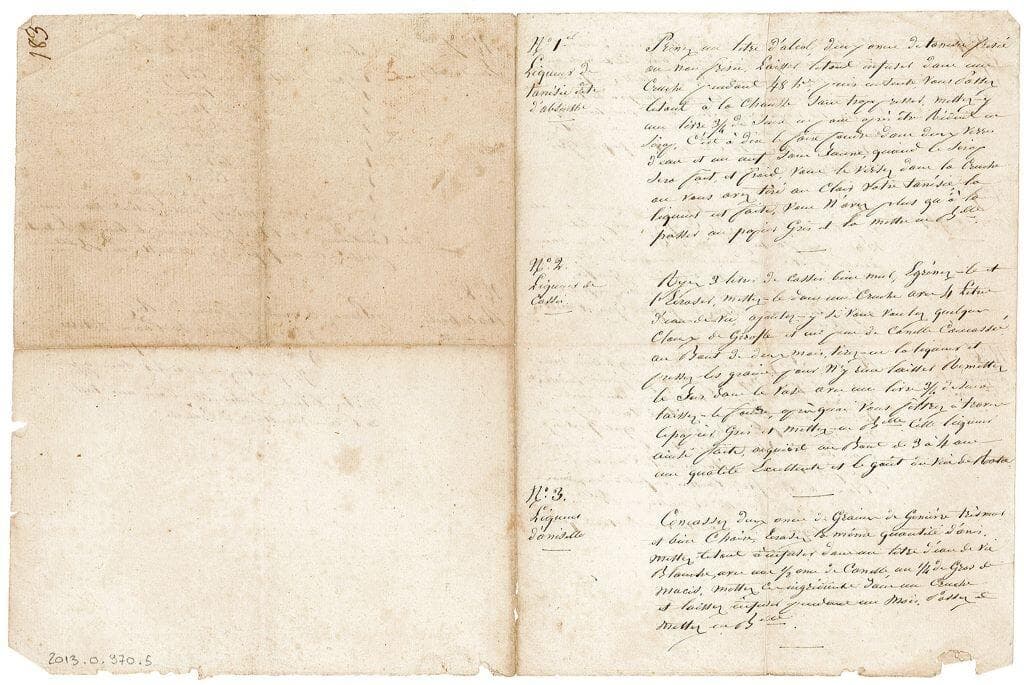 183
N.º 1er
Liqueur de
tanisie dite
d'absinthe
Prenez un litre d'alcol deux once de tanisie frisée
ou non frisée, Laissez letout infuser dans une
Cruche pendant 48 hes puis ensuite vous Passez
letout à la Chausse sans trop presser, mettez y
une livre 3/4 de Sucre
Sirop, C'est à dire le faire fondre dans deux verres
d'eau et un œuf sans Jaune, quand le Sirop
Sera fait, et froid, vous le Versez dans la Cruche
ou vous avez tiré au Clair votre tanisie, la
liqueur est faite, vous N'avez plus qu'à la
passer au papier Gris et la mettre en Blle
N.º 2.
Liqueur de
Cassis
Ayez 3 livres de Cassis bien mur, Egrénez-le et
l'Ecrasez, mettez-le dans une Cruche avec 4 Litres
d'eau de vie ajoutez-y si vous voulez quelques
Cloux de Girofle et un peu de Canelle Concassée
au Bout de deux mois, tirez-en la liqueur et
pressez les grains, pour N'y rien laisser Remettez
le Jus dans le Vase avec une livre 3/4 de Sucre
laissez-le fondre, après quoi vous filtrez à travers
le papier Gris et mettez-en Blle Cette liqueur
ainsi faite, acquiert au Bout de 3 à 4 ans
une qualité Excellente et le goût du Vin de Rota
N.º 3.
Liqueur
d'anisette
Concassez deux once de Graine de Genièvre
et bien Choisie, Ecrasez la même quantité d'anis,
mettez letout à infuser dans un litre d'eau de vie
Blanche, avec une 1/2 once de Canelle un 1/4 de Gros de
macis, mettez ce ingrédients dans une Cruche
et laissez infuser pendant un Mois, Passez &
Mettez en Blle.
2013.0.370.5